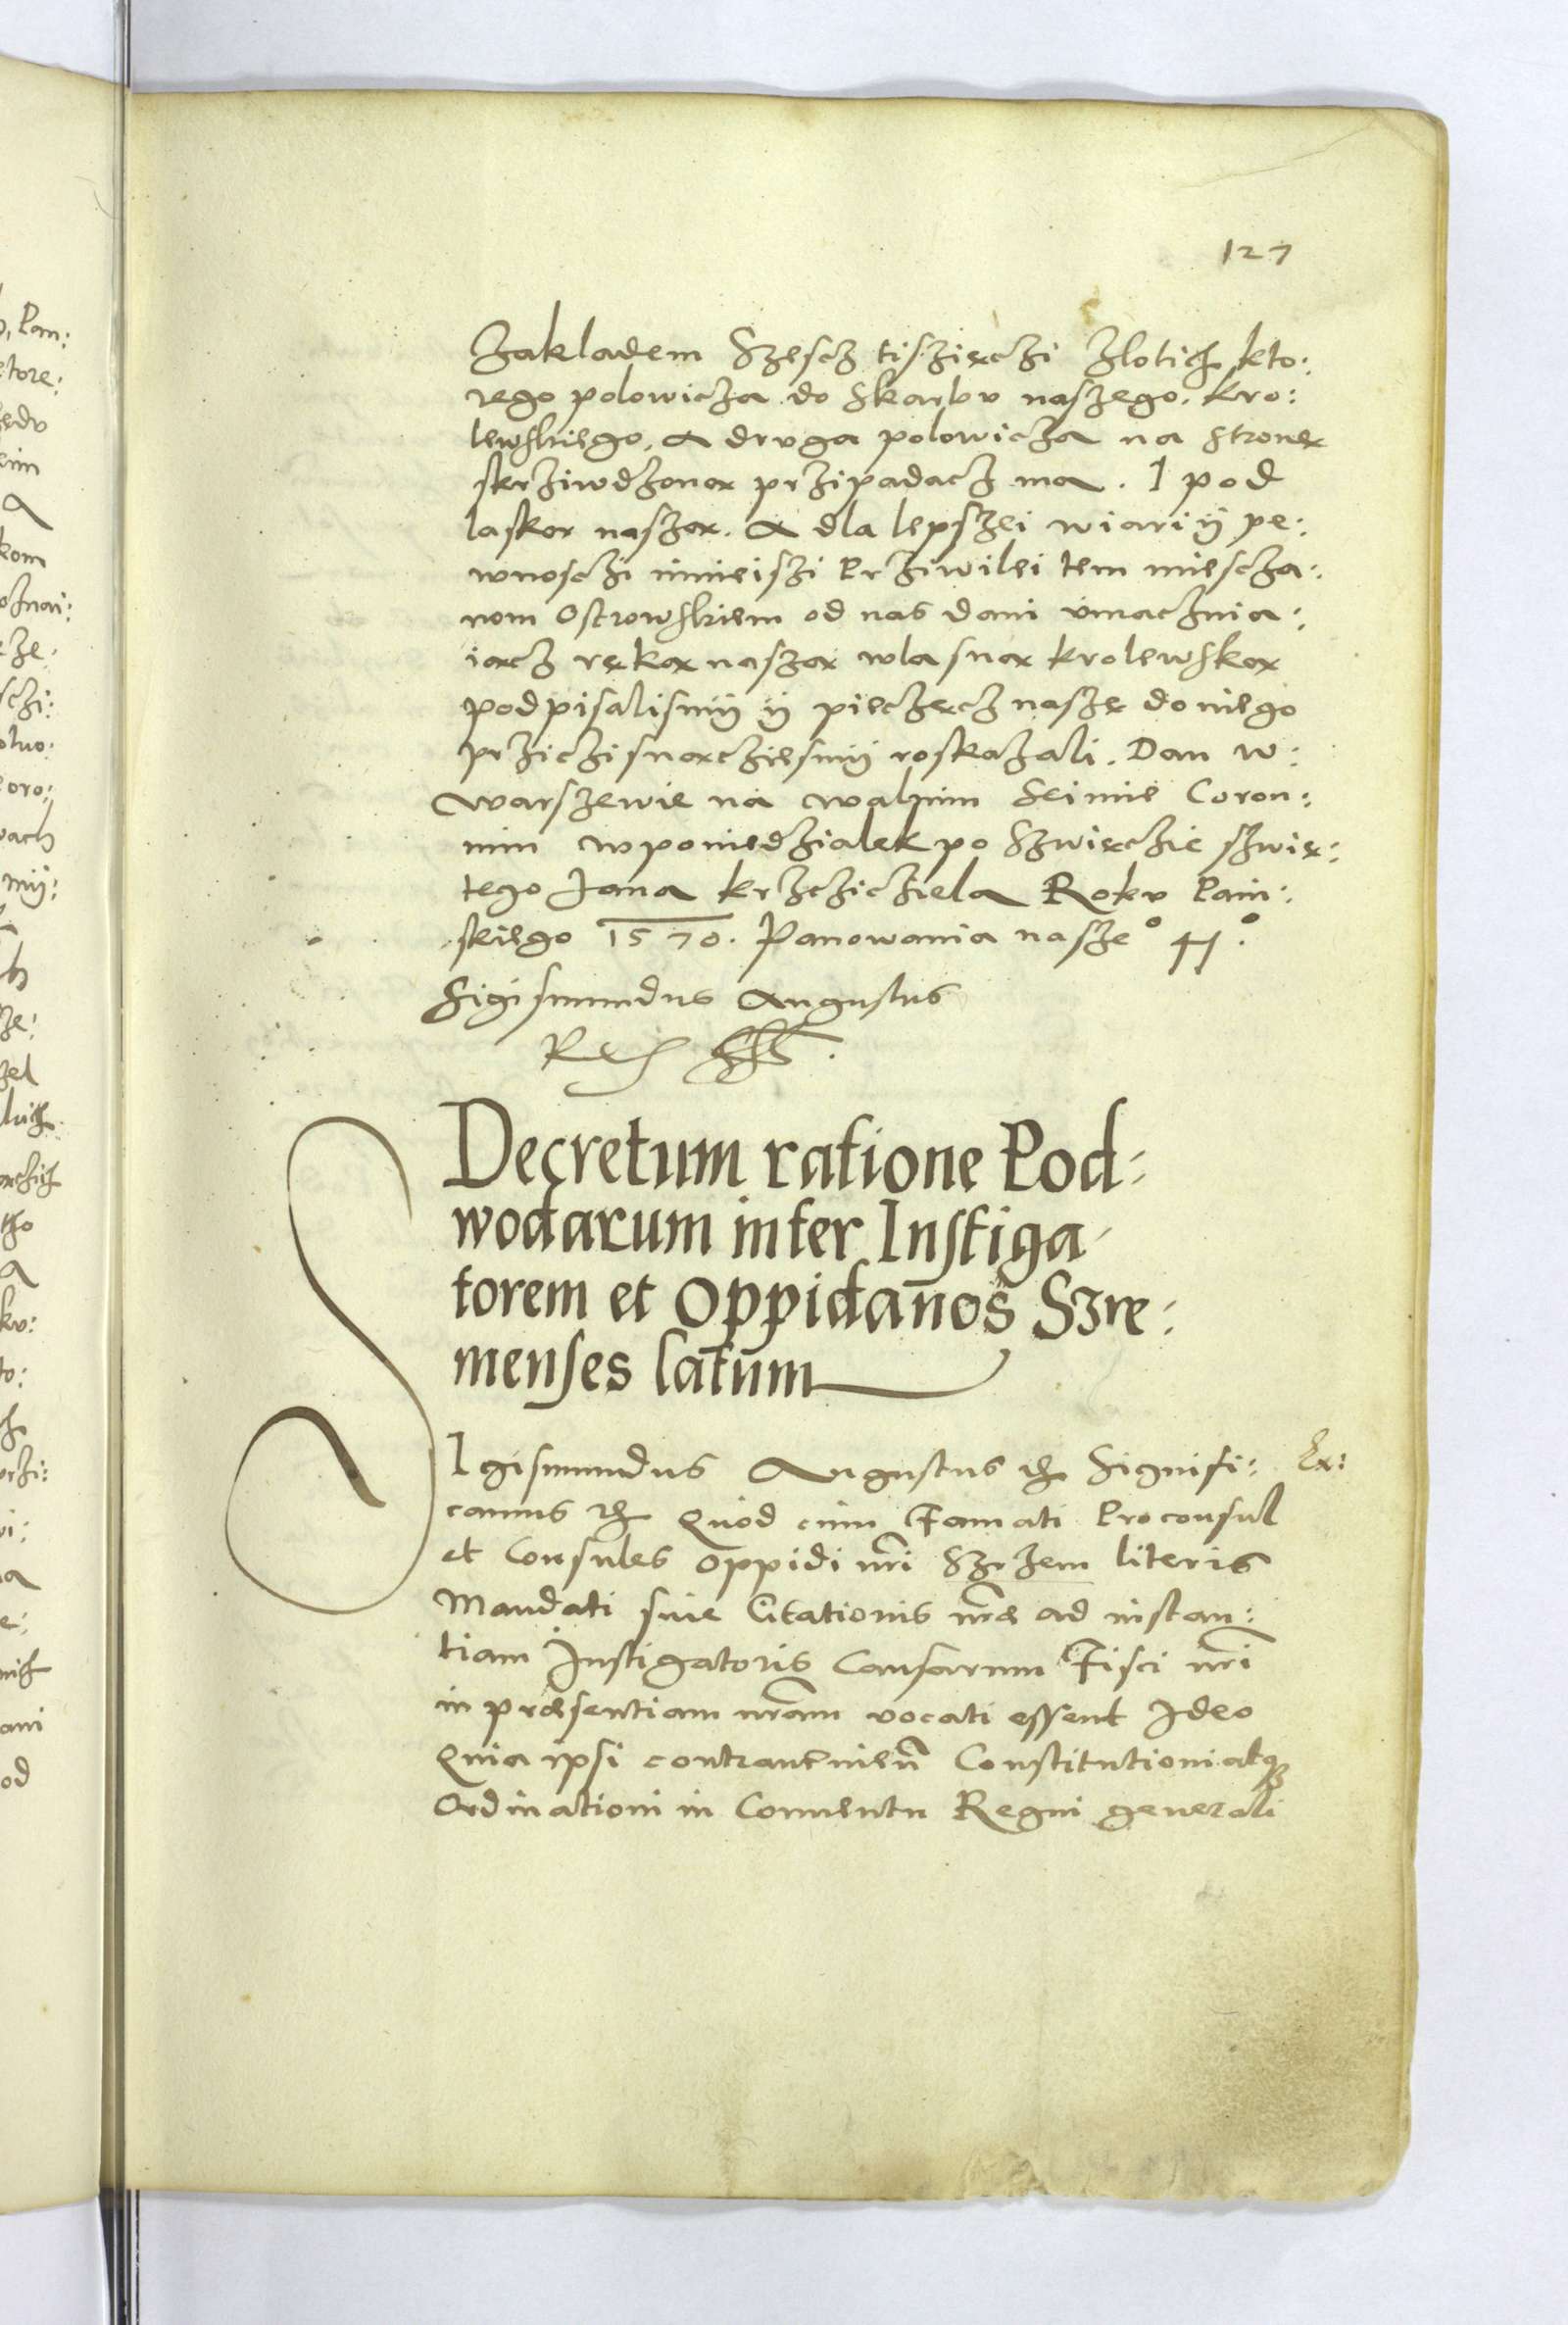 127
Zakladem Szescz tiszięczi Zlotich kto:
rego polowicza do Skarbu naszego. kro:
lewskiego, a druga polowicza na stronę
skrziwdzoną przipadacz ma. I pod
laską naszą. A dla lepszei wiari ÿ pe:
wnosczi ninieiszi Prziwilei tem miescza:
nom Ostrowskiem od nas dani vmacznia:
iącz ręką naszą wlasną krolewską
podpisalismÿ ÿ pieczęcz naszę do niego
przicisnącziesmÿ roskazali. Dan w:
Warszewie na walnim Seimie Coron:
nim w poniedzialek po Szwięczie szwię:
tego Jana krzcziciela Roku Pain:
skiego 1570. Panowania nasze° 41.°
Sigismundus Augustus
Rex
Decretum ratione Pod:
wodarum inter Instiga
torem et Oppidanos Szre:
menses latum
SIgismundus Augustus etc Signifi: Ex:
camus etc Quod cum Famati Proconsul
et Consules oppidi nri Szrzem literis
Mandati siue Citationis nræ ad instan:
tiam Instigatoris Causarum Fisci nri
in præsentiam nram vocati essent Ideo
Quia ipsi contrauenien Constitutioni atq3
Ordinationi in Conuentu Regni generali